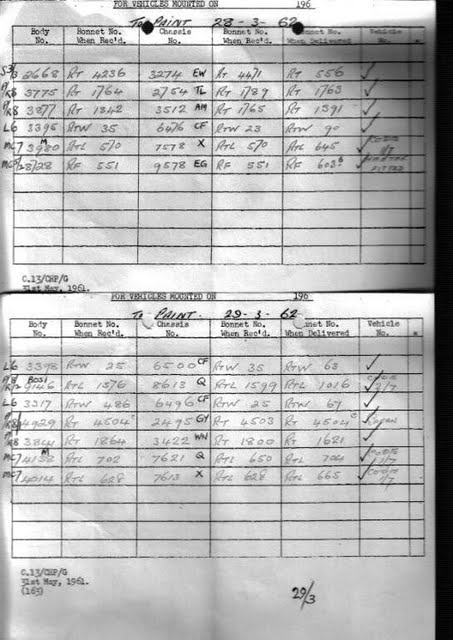 FOR VEHICLES MOUNTED ON 196
To PAINT 28-3-62
Body No. Bonnet No. When Rec'd. Chassis No. Bonnet No. When Rec'd. Bonnet No. When Delivered Vehicle No.
2668 RT 4236 3274 EW RT 4471 RT 556 ✓
3775 RT 1764 2754 TL RT 1789 RT 1763 ✓
3877 RT 1342 3512 AM RT 1765 RT 1391 ✓
L6 3395 RTW 35 6476 CF RTW 23 RTW 90 ✓
MC7 3980 M RTL 570 7578 X RTL 570 RTL 645 ✓
28/28 RF 551 9578 EG RF 551 RF 603 ✓ FITTED
C.13/CHP/G
31st May, 1961.
FOR VEHICLES MOUNTED ON 196
To PAINT. 29-3-62
Body No. Bonnet No. When Rec'd. Chassis No. Bonnet No. When Rec'd. Bonnet No. When Delivered Vehicle No. *
L6 3398 RTW 25 6500 CF RTW 35 RTW 63 ✓
RTL 1576 8613 Q RTL 1599 RTL 1016 ✓
L6 3317 RTW 486 6496 CF RTW 25 RTW 67 ✓
4929 RT 4504 2495 GY RT 4503 RT 4504 ✓
3841 RT 1864 3422 WN RT 1800 RT 1621 ✓
MC7 4138 M RTL 702 7621 Q RTL 650 RTL 704 ✓
MC7 4014 RTL 628 7613 X RTL 628 RTL 665 ✓
C.13/CHP/G
31st May, 1961.
(163)
29/3